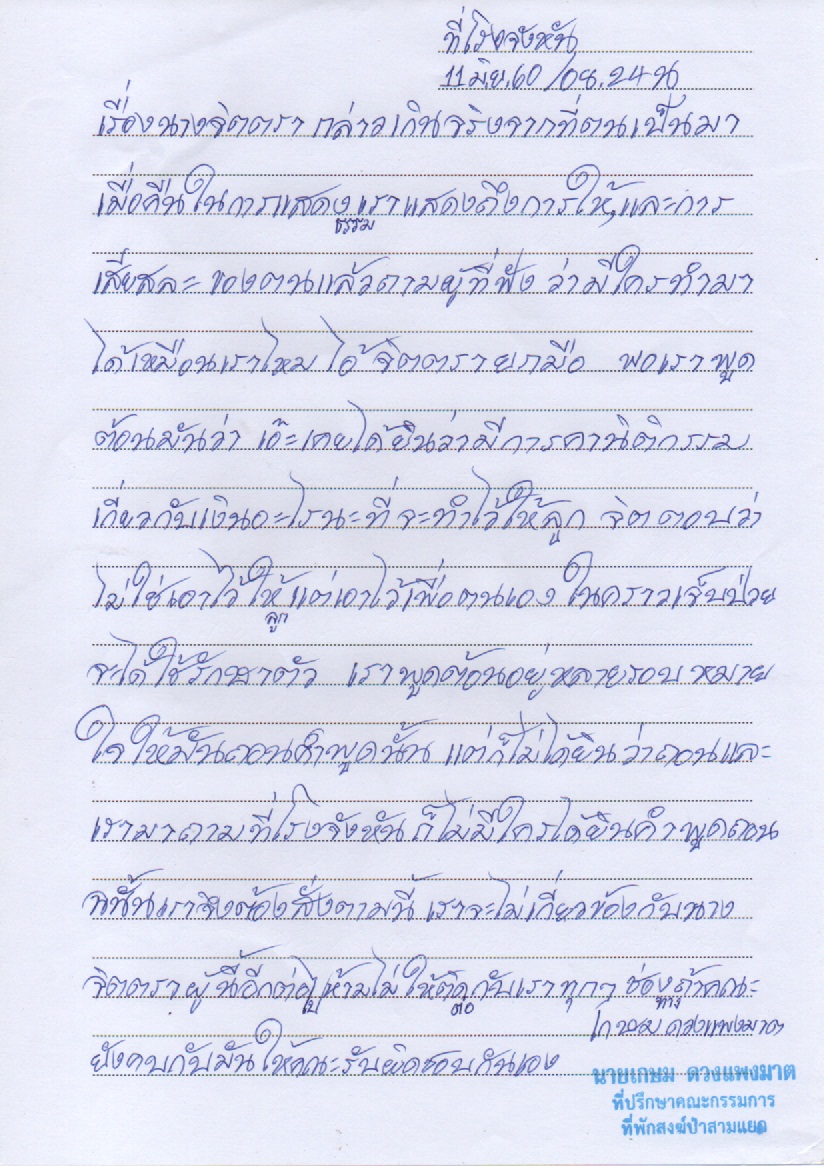 ที่โรงจังหัน
11 มิ.ย. 60 /08.24 น
เรื่องนางจิตตรา กล่าวเกินจริงจากที่ตนเป็นมา
เมื่อคืนในการแสดงธรรมเราแสดงถึงการให้, และการ
เสียสละ ของตนแล้วถามผู้ที่ฟัง ว่ามีใครทำมา
ได้เหมือนเราไหม ไอ้จิตตรายกมือ พอเราพูด
ต้อนมันว่า เอ๊ะเคยได้ยินว่ามีการทำนิติกรรม
เกี่ยวกับเงินอะไรนะที่จะทำไว้ให้ลูก จิตตอบว่า
ไม่ใช่เอาไว้ให้ลูกแต่เอาไว้เพื่อตนเอง ในคราวเจ็บป่วย
จะได้ใช้รักษาตัว เราพูดต้อนอยู่หลายรอบ หมาย
ใจให้มันถอนคำพูดนั้น แต่ก็ไม่ได้ยินว่าถอนและ
เรามาถามที่โรงจังหันก็ไม่มีใครได้ยินคำพูดถอน
นั้นเราจึงต้องสั่งตามนี้ เราจะไม่เกี่ยวข้องกับนาง
จิตตราผู้นี้อีกต่อไปห้ามไม่ให้ติดต่อกับเราทุกๆ ช่องทางถ้าคณะ
ยังคบกับมันให้คณะรับผิดชอบกันเอง
เกษม ดวงแพงมาต
นายเกษม ดวงแพงมาต
ที่ปรึกษาคณะกรรมการ
ที่พักสงฆ์ป่าสามแยก